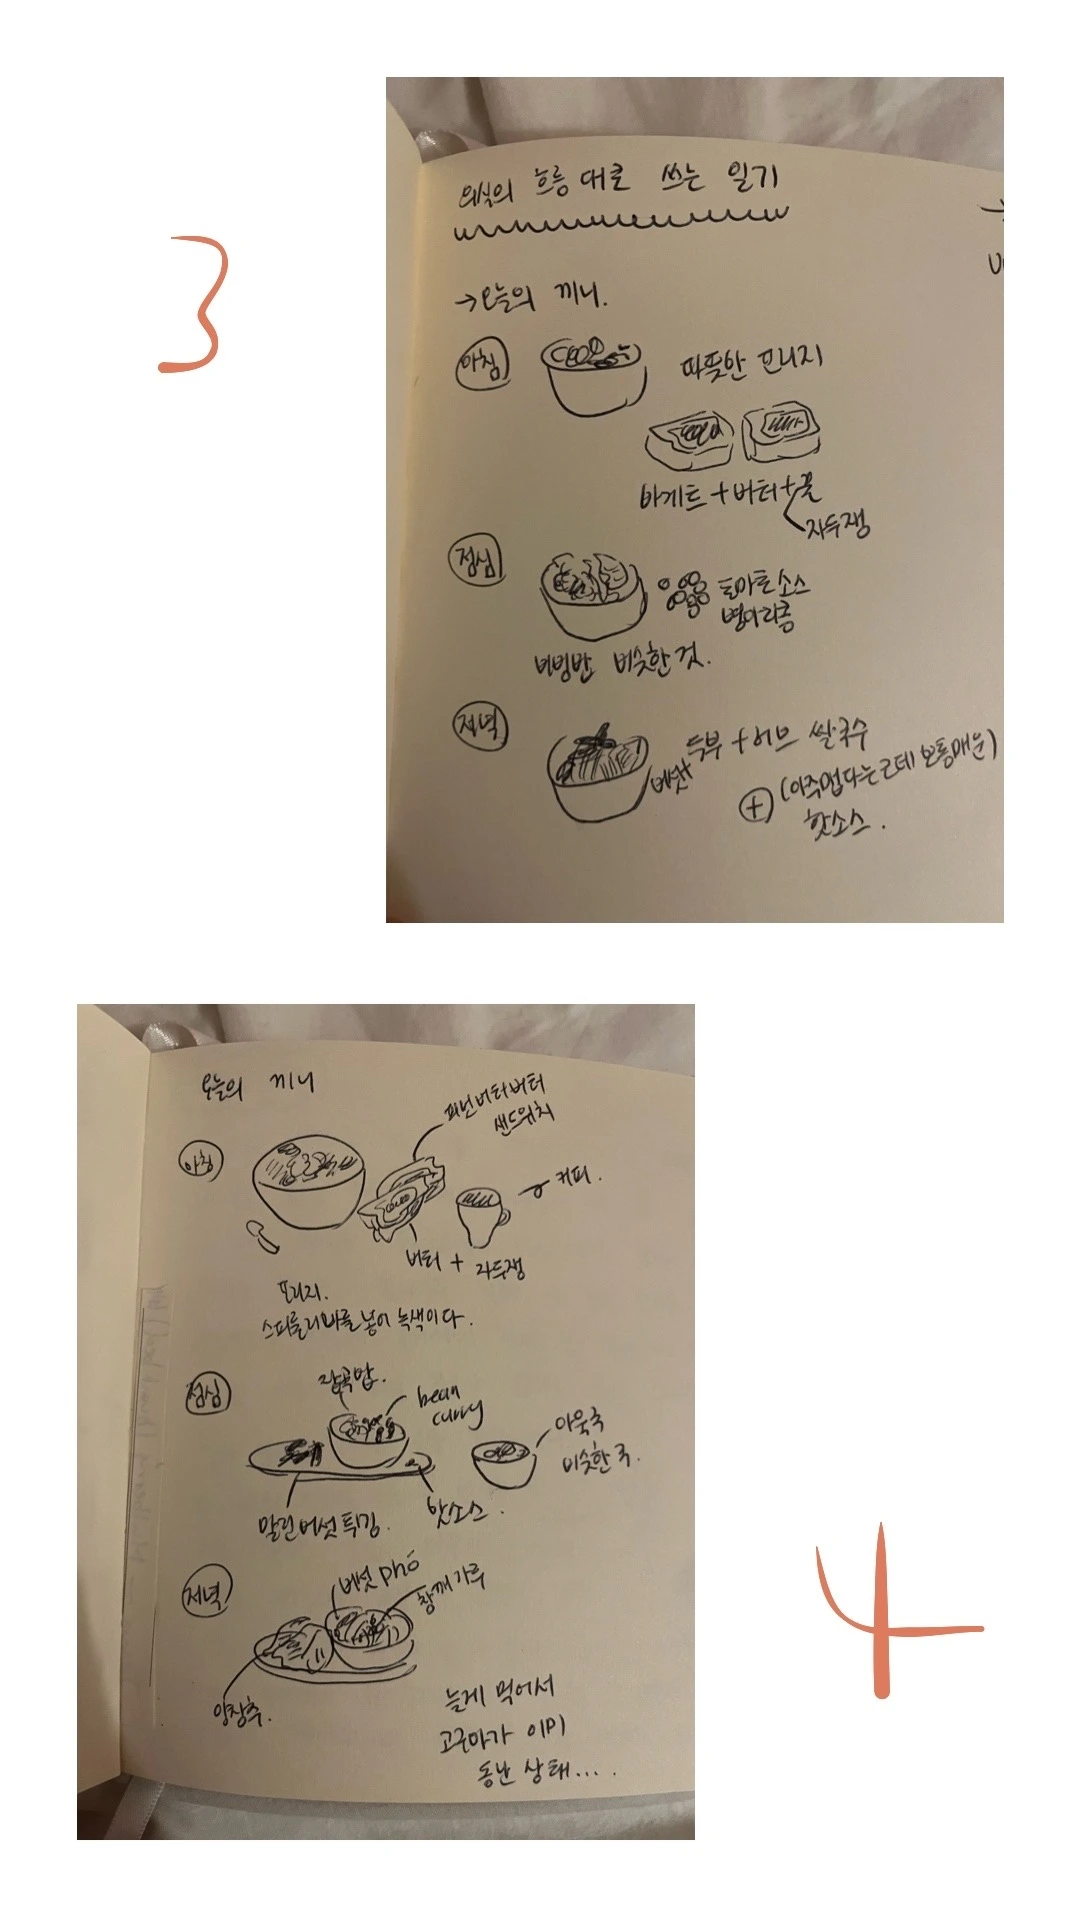 3
의식의 흐름 대로 쓰는 일기
→오늘의 끼니.
아침
따뜻한 포리지
바게트 + 버터 + 꿀
자두잼
점심
토마토소스
병아리콩
비빔밥 비슷한 것.
저녁
버섯+
두부 + 허브 쌀국수
+ (아주맵다는데 보통매운)
핫소스.
오늘의 끼니
피넛버터버터
샌드위치
아침
커피.
버터 + 자두잼
포리지.
스피룰리나를 넣어 녹색이다.
잡곡밥.
점심
bean
curry
아욱국
비슷한 국.
말린버섯튀김.
핫소스.
저녁
버섯 phở
참깨가루
양상추.
늦게 먹어서
고구마가 이미
동난 상태....
4